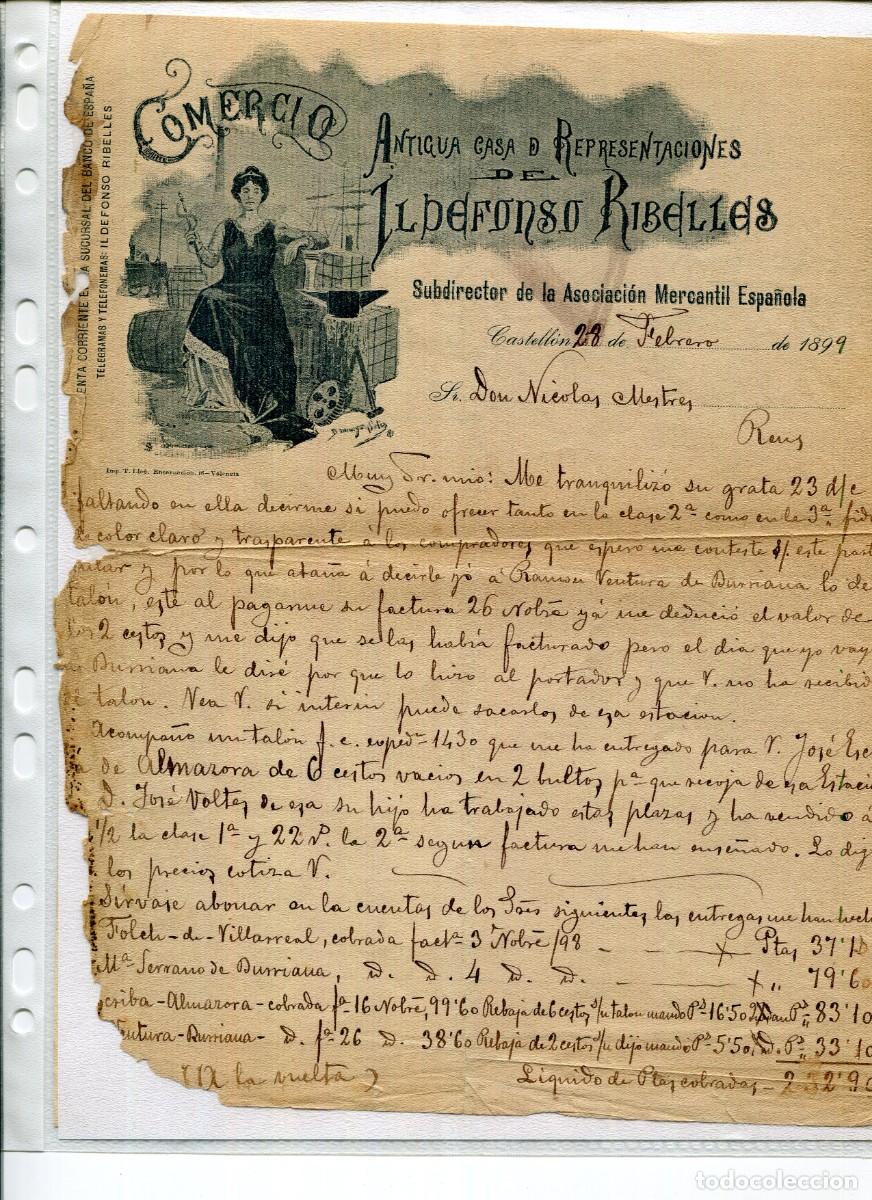 COMERCIO
ANTIGUA CASA D REPRESENTACIONES
DE
ILDEFONSO RIBELLES
Subdirector de la Asociación Mercantil Española
ENTA CORRIENTE E A SUCURSAL DEL BANCO DE ESPAÑA
TELEGRAMAS Y TELEFONEMAS: ILDEFONSO RIBELLES
Castellón 28 de Febrero de 1899
Sr. Don Nicolas Mestres
Reus
Valencia
Muy Sr. mio: Me tranquilizó su grata 23 d/c
faltando en ella decirme si puedo ofrecer tanto en la clase 2ª como en la 3ª
color claro y trasparente á los compradores que espero me conteste s/. este
y por lo que ataña á decirle yó á Ramon Ventura de Burriana lo de
talón, este al pagarme su factura 26 Nobre yá me dedució el valor de
los 2 cestos y me dijo que se las había facturado pero el dia que yo vay
Burriana le diré por que lo hizo al portador y que V. no ha recibid
talon. Vea V. si interin puede sacarlos de esa estacion.
Acompaño un talón f. c. expedn 1430 que me ha entregado para V. José Esc
de Almazora de 6 cestos vacios en 2 bultos pª que recoja de esa Estació
D. José Voltes de esa su hijo ha trabajado estas plazas y ha vendido á
1/2 la clase 1ª y 22 la 2ª segun factura me han enseñado. Lo dig
los precios cotiza V.
Sírvase abonar en la cuentas de los Sres siguientes las entregas me han hech
Folch-de-Villarreal, cobrada factª 3 Nobre/98 Ptas 37'10
Mª Serrano de Burriana, D. D. 4 D. D. 79'60
criba-Almazora-cobrada fª 16 Nobre, 99'60 Rebaja de 6 cestos s/n talon mando Ps 16'50 83'10
entura-Burriana- D. fª 26 D. 38'60 Rebaja de 2 cestos s/n dijo mando Ps 5'50, 33'10
(A la vuelta) Líquido de Ptas cobradas 232'90
todocoleccion